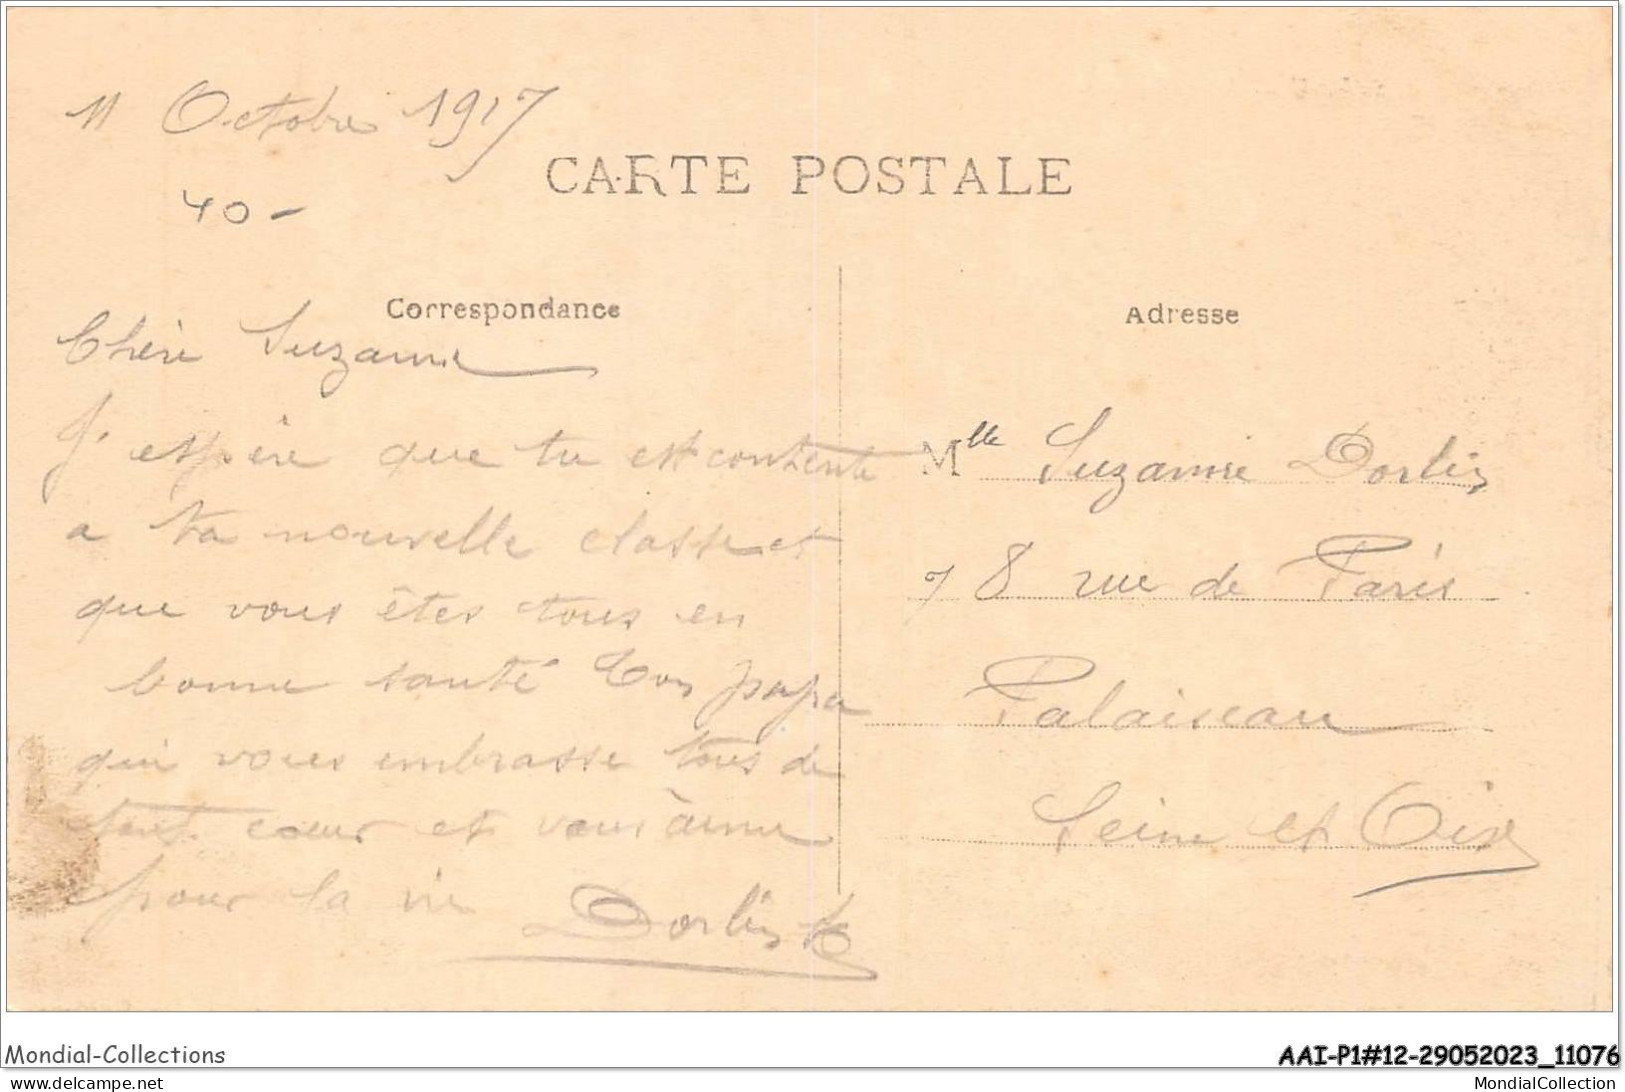 11 Octobre 1917
CARTE POSTALE
40-
Correspondance
Chère Suzanne
J'espère que tu est contente
a ta nouvelle classe et
que vous êtes tous en
bonne santé Ton papa
qui vous embrasse tous de
tout cœur et vous aime
pour la vie Dorlin
Adresse
Mlle Suzanne Dorlin
78 rue de Paris
Palaiseau
Seine et Oise
Mondial-Collections
AAI-P1#12-29052023_11076
www.delcampe.net
MondialCollection